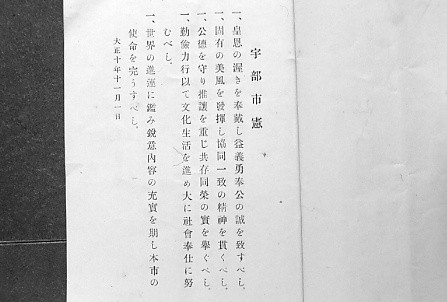 宇部市憲
一、皇恩の渥きを奉戴し益義勇奉公の誠を致すべし。
一、固有の美風を發揮し協同一致の精神を貫くべし。
一、公德を守り推讓を重じ共存同榮の實を擧ぐべし。
一、勤儉力行以て文化生活を進め大に社會奉仕に努
むべし。
一、世界の進運に鑑み銳意內容の充實を期し本市の
使命を完うすべし。
大正十年十一月一日